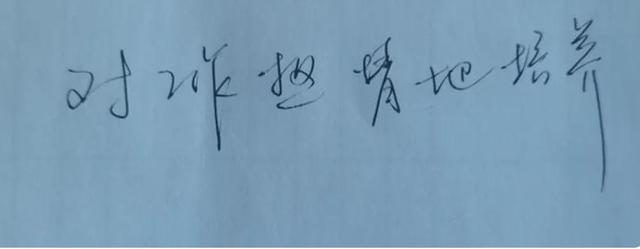 对咋热情地培养